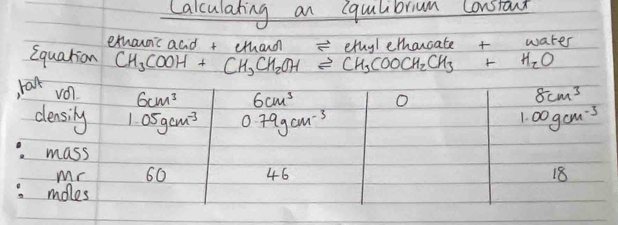 Calculating an Equilibrium Constant
ethanoic acid + ethanol ⇌ ethyl ethanoate + water
Equation CH₃COOH + CH₃CH₂OH ⇌ CH₃COOCH₂CH₃ + H₂O
vol 6cm³ 6cm³ 0 8cm³
density 1.05gcm⁻³ 0.79gcm⁻³ 1.00gcm⁻³
∴ mass
Mr 60 46 18
∴ moles